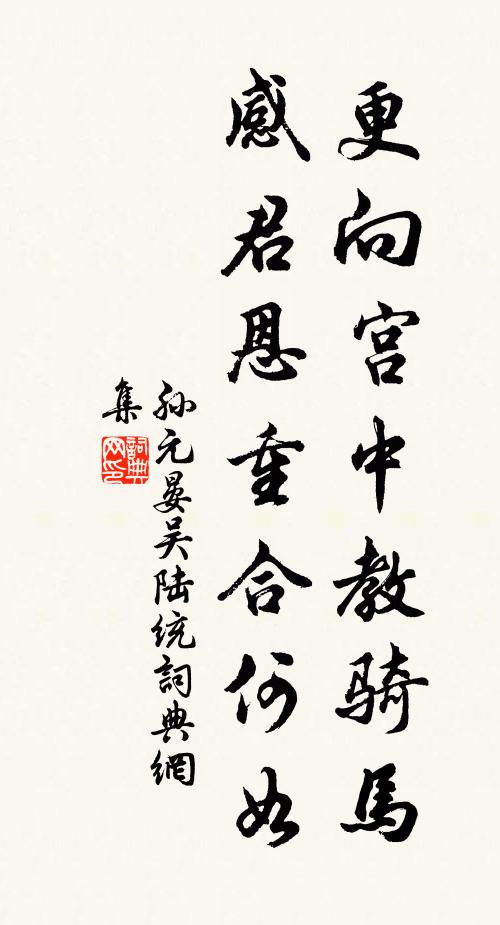 更向宫中教骑馬
感君恩重合何如
孙元晏吴陆统詞典網
集
詞典网印